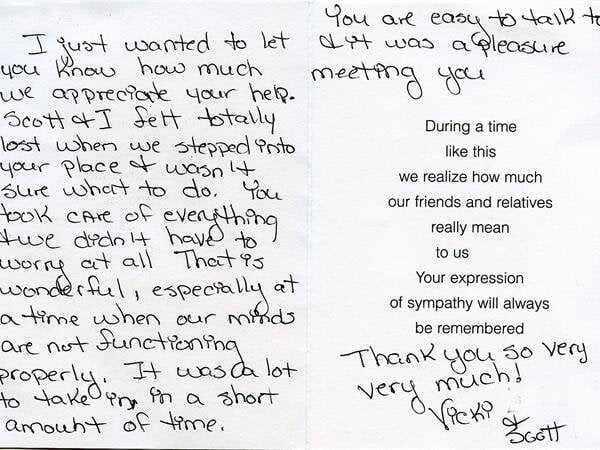 I just wanted to let
you know how much
we appreciate your help.
Scott & I felt totally
lost when we stepped into
your place & wasn't
sure what to do. You
took care of everything
& we didn't have to
worry at all That is
wonderful, especially at
a time when our minds
are not functioning
properly. It was a lot
to take in, in a short
amount of time.
You are easy to talk to
& it was a pleasure
meeting you
During a time
like this
we realize how much
our friends and relatives
really mean
to us
Your expression
of sympathy will always
be remembered
Thank you so very
very much!
Vicki
& Scott